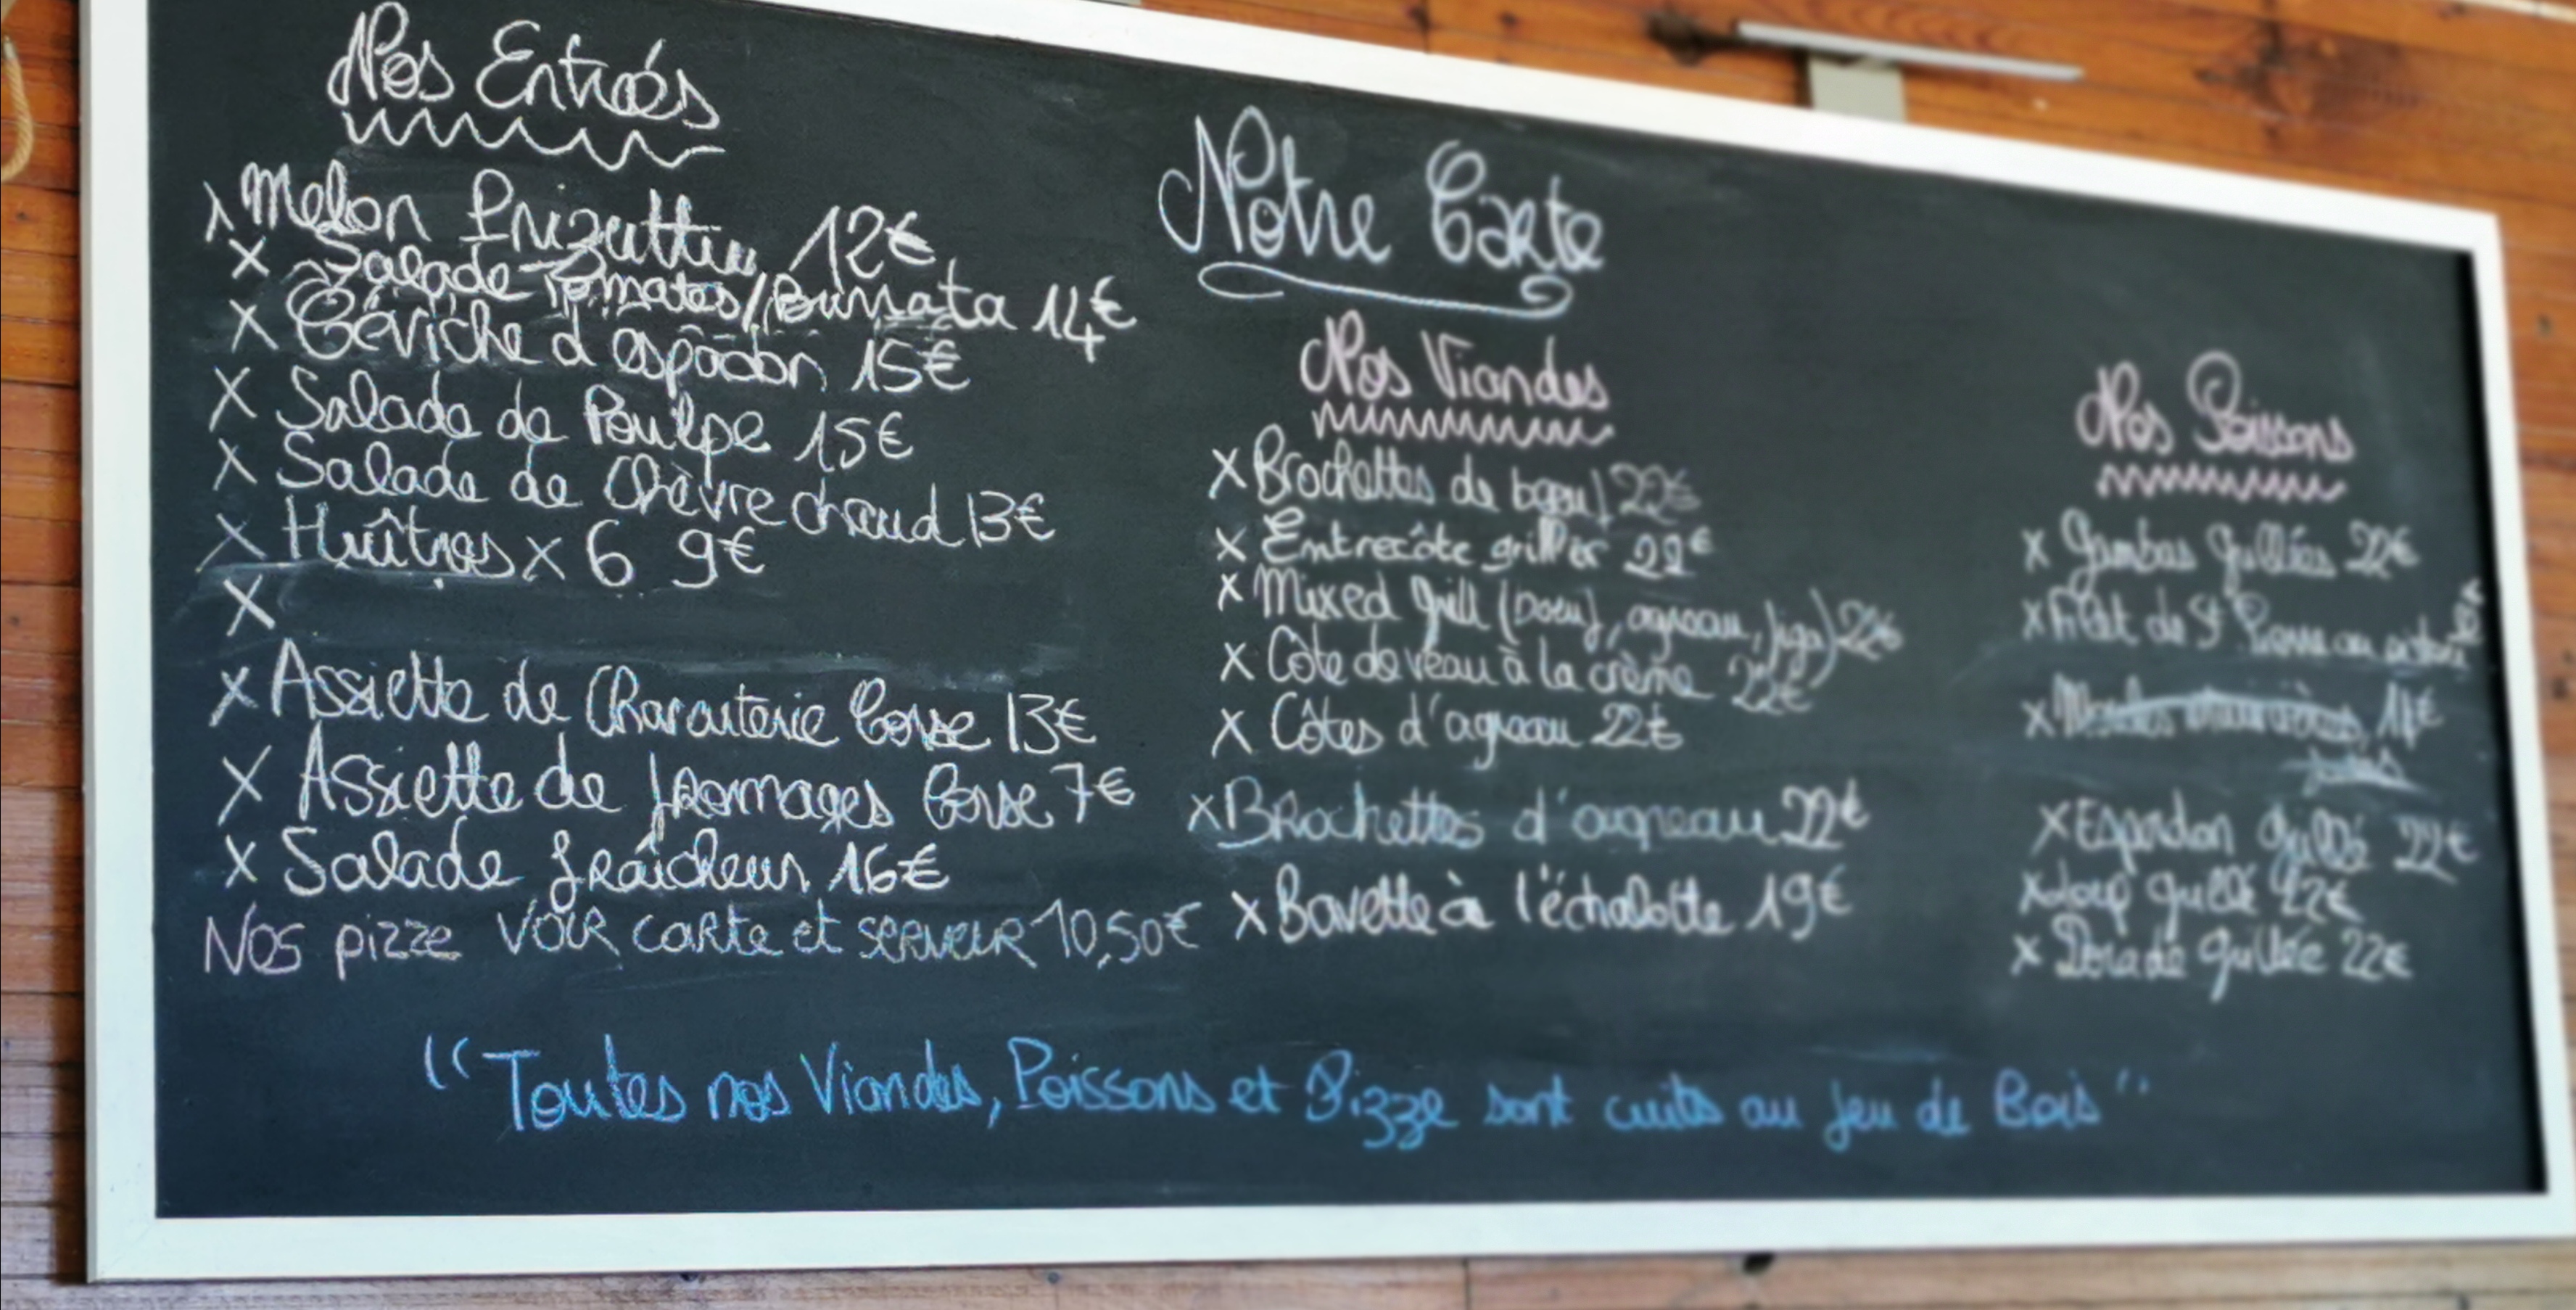 Nos Entrées
Melon Prizuttu 12€
X Salade Tomates/Burrata 14€
X Céviche d'espadon 15€
X Salade de Poulpe 15€
X Salade de Chèvre chaud 13€
X Huîtres x 6 9€
X
X Assiette de Charcuterie Corse 13€
X Assiette de fromages Corse 7€
X Salade fraîcheur 16€
Nos pizze VOIR carte et serveur 10,50€
Notre Carte
Nos Viandes
X Brochettes de boeuf 22€
X Entrecôte griller 22€
X Mixed Grill (boeuf, agneau, figa) 22€
X Côte de veau à la crème 22€
X Côtes d'agneau 22€
X Brochettes d'agneau 22€
X Bavette à l'échalotte 19€
Nos Poissons
X Gambas Grillées 22€
X Filet de St Pierre au
X Moules marinières 14€
frites
X Espardon Grillé 22€
X Loup grillé 22€
X Dorade grillée 22€
"Toutes nos Viandes, Poissons et Pizze sont cuits au feu de Bois"